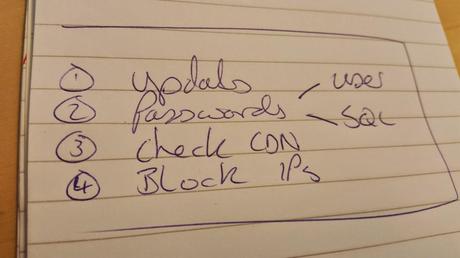 ① updats
② Passwords user
SQL
③ check CDN
④ Block IPs